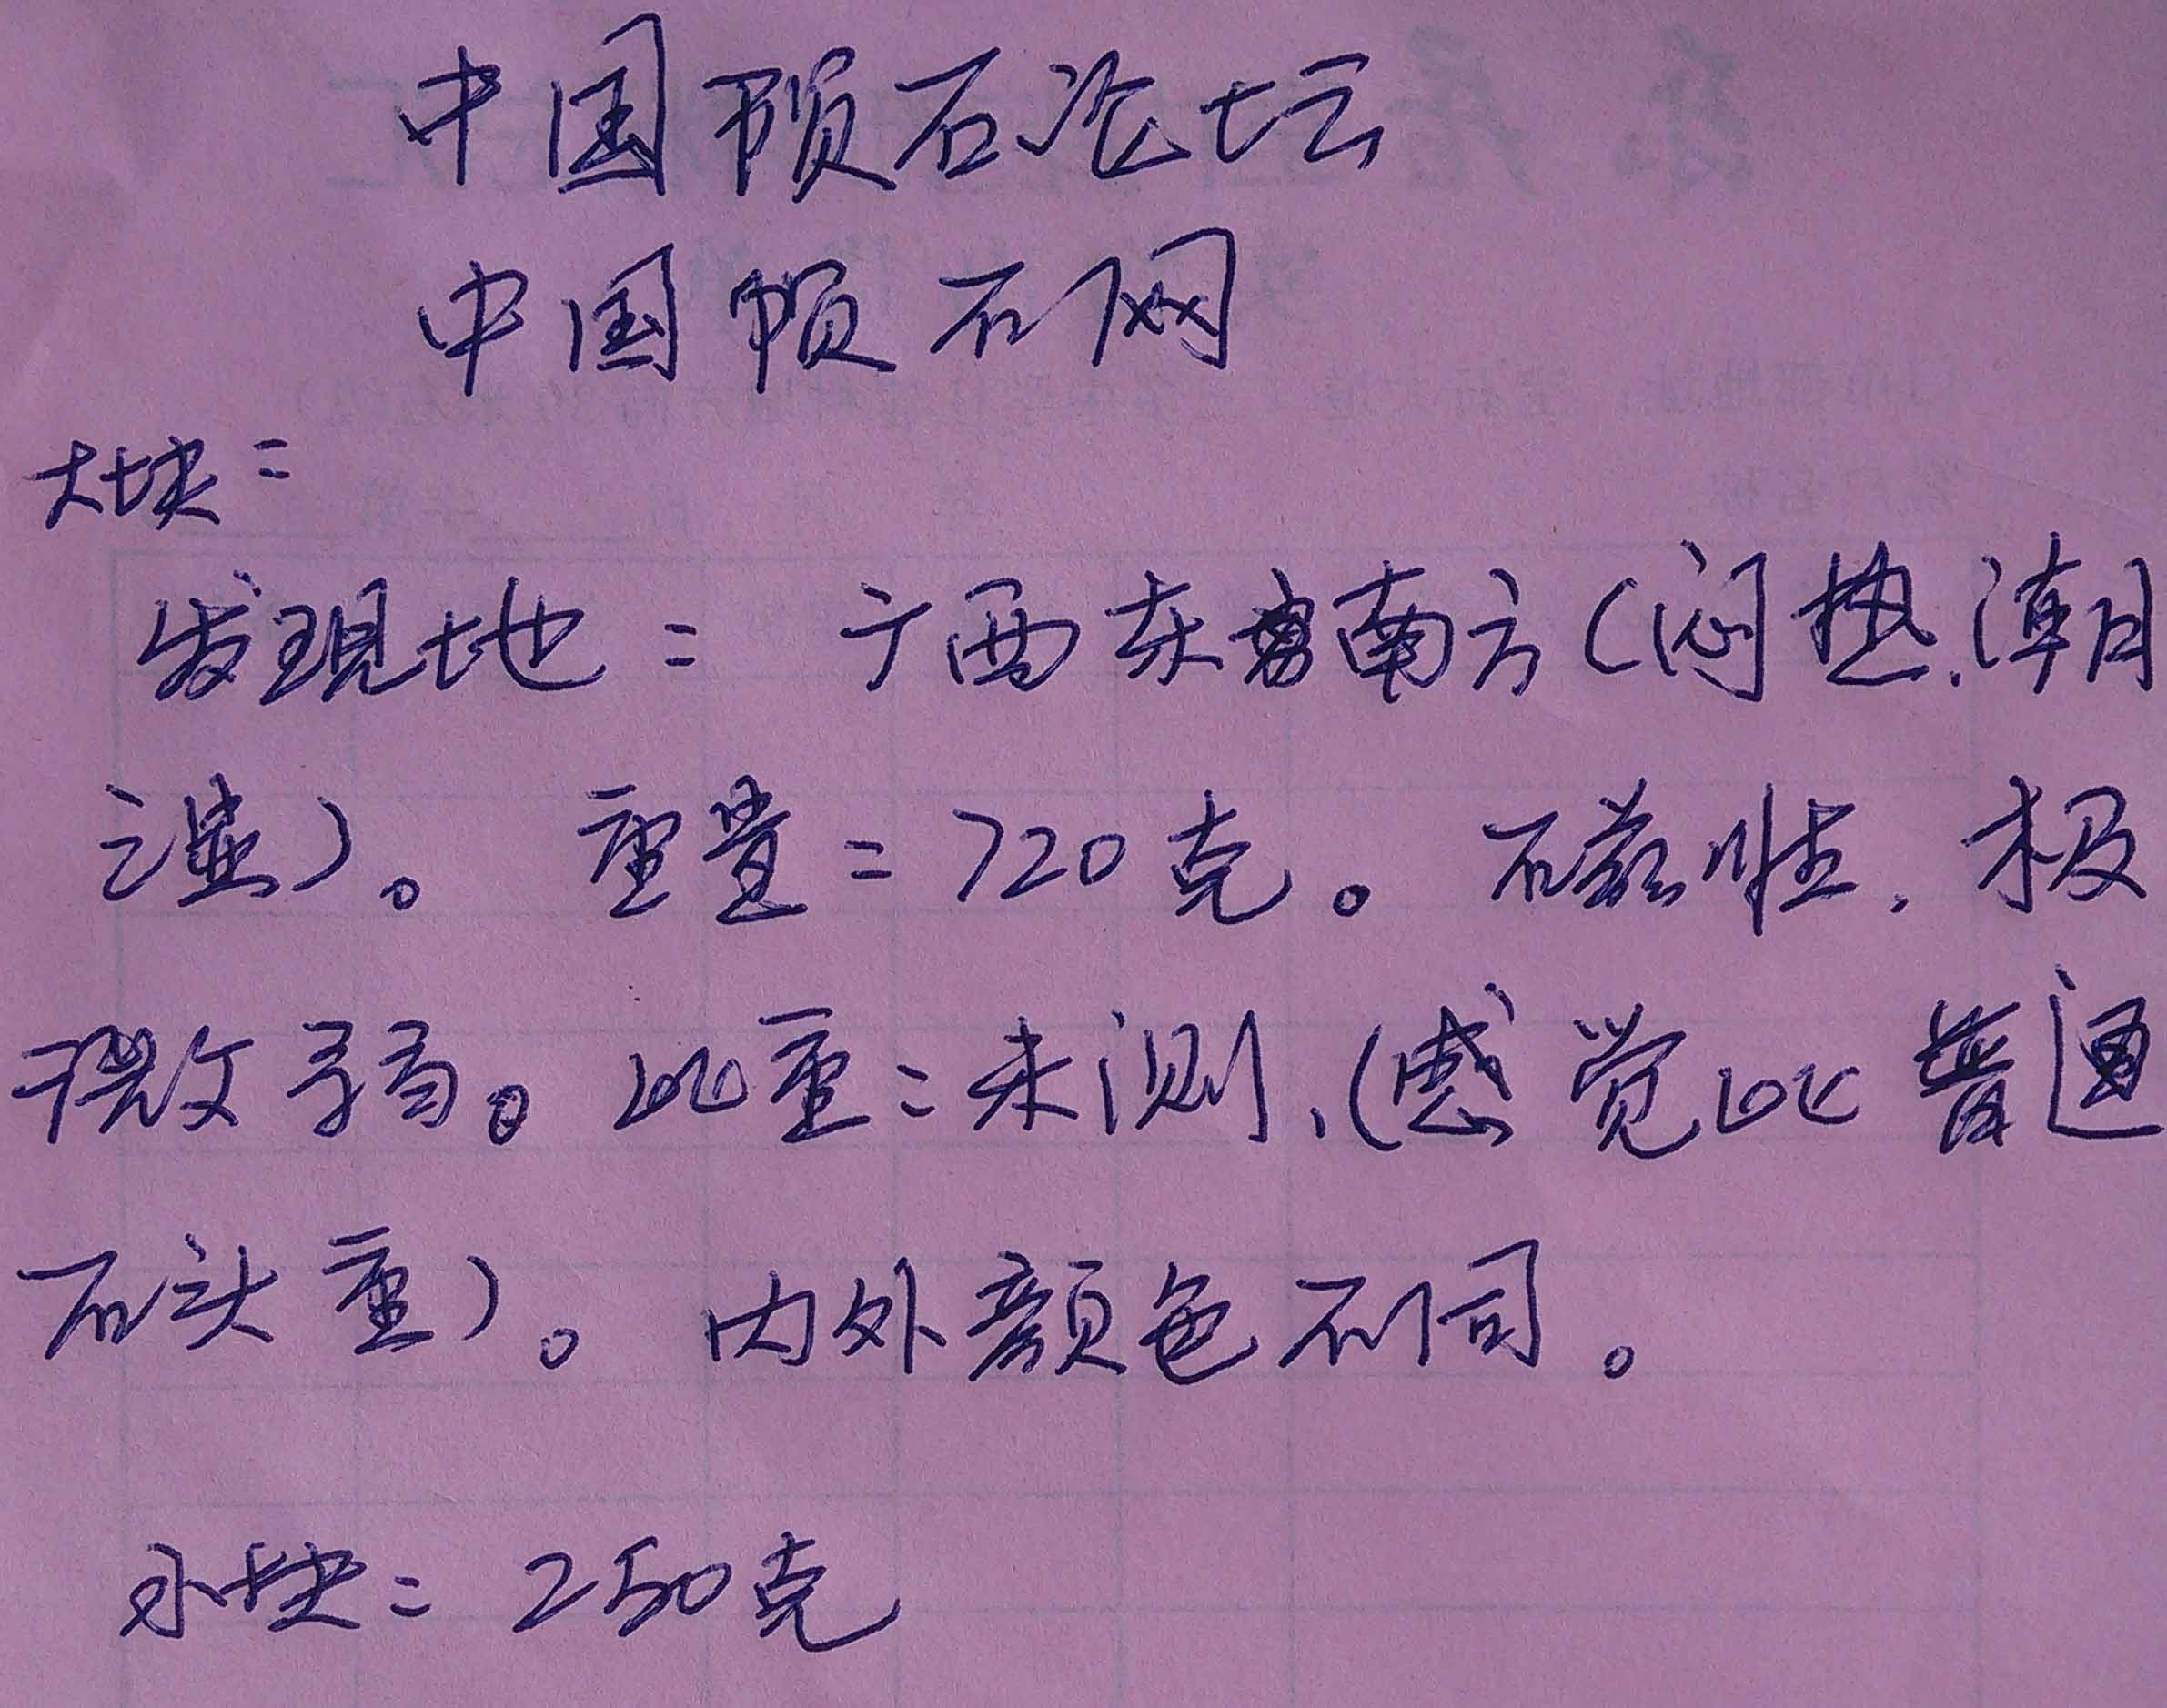 中国陨石论坛
中国陨石网
大块:
发现地: 广西东南方(闷热.潮
湿)。 重量:720克。 磁性.极
微弱。比重:未测、(感觉比普通
石头重)。 内外颜色不同。
小块: 250克